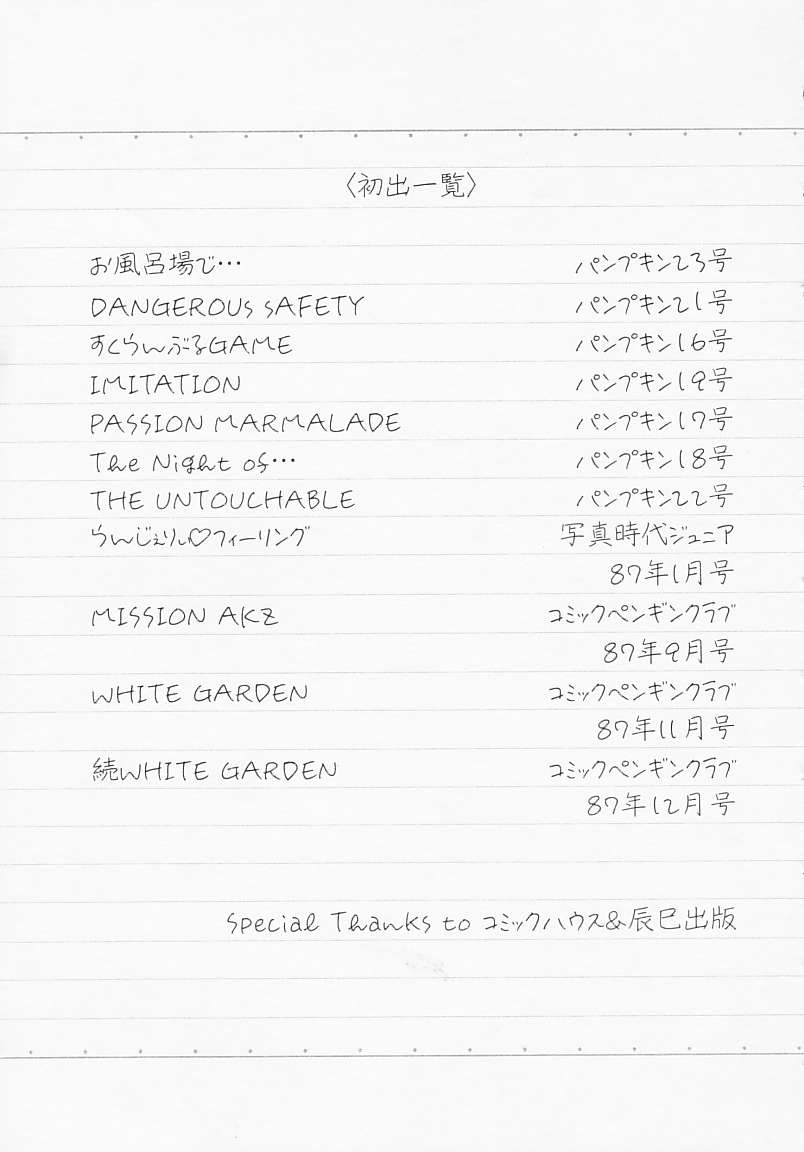 〈初出一覧〉
お風呂場で… パンプキン23号
DANGEROUS SAFETY パンプキン21号
すくらんぶるGAME パンプキン16号
IMITATION パンプキン19号
PASSION MARMALADE パンプキン17号
The Night of… パンプキン18号
THE UNTOUCHABLE パンプキン22号
らんじぇりぃ♡フィーリング 写真時代ジュニア
87年1月号
MISSION AKZ コミックペンギンクラブ
87年9月号
WHITE GARDEN コミックペンギンクラブ
87年11月号
続WHITE GARDEN コミックペンギンクラブ
87年12月号
Special Thanks to コミックハウス&辰巳出版